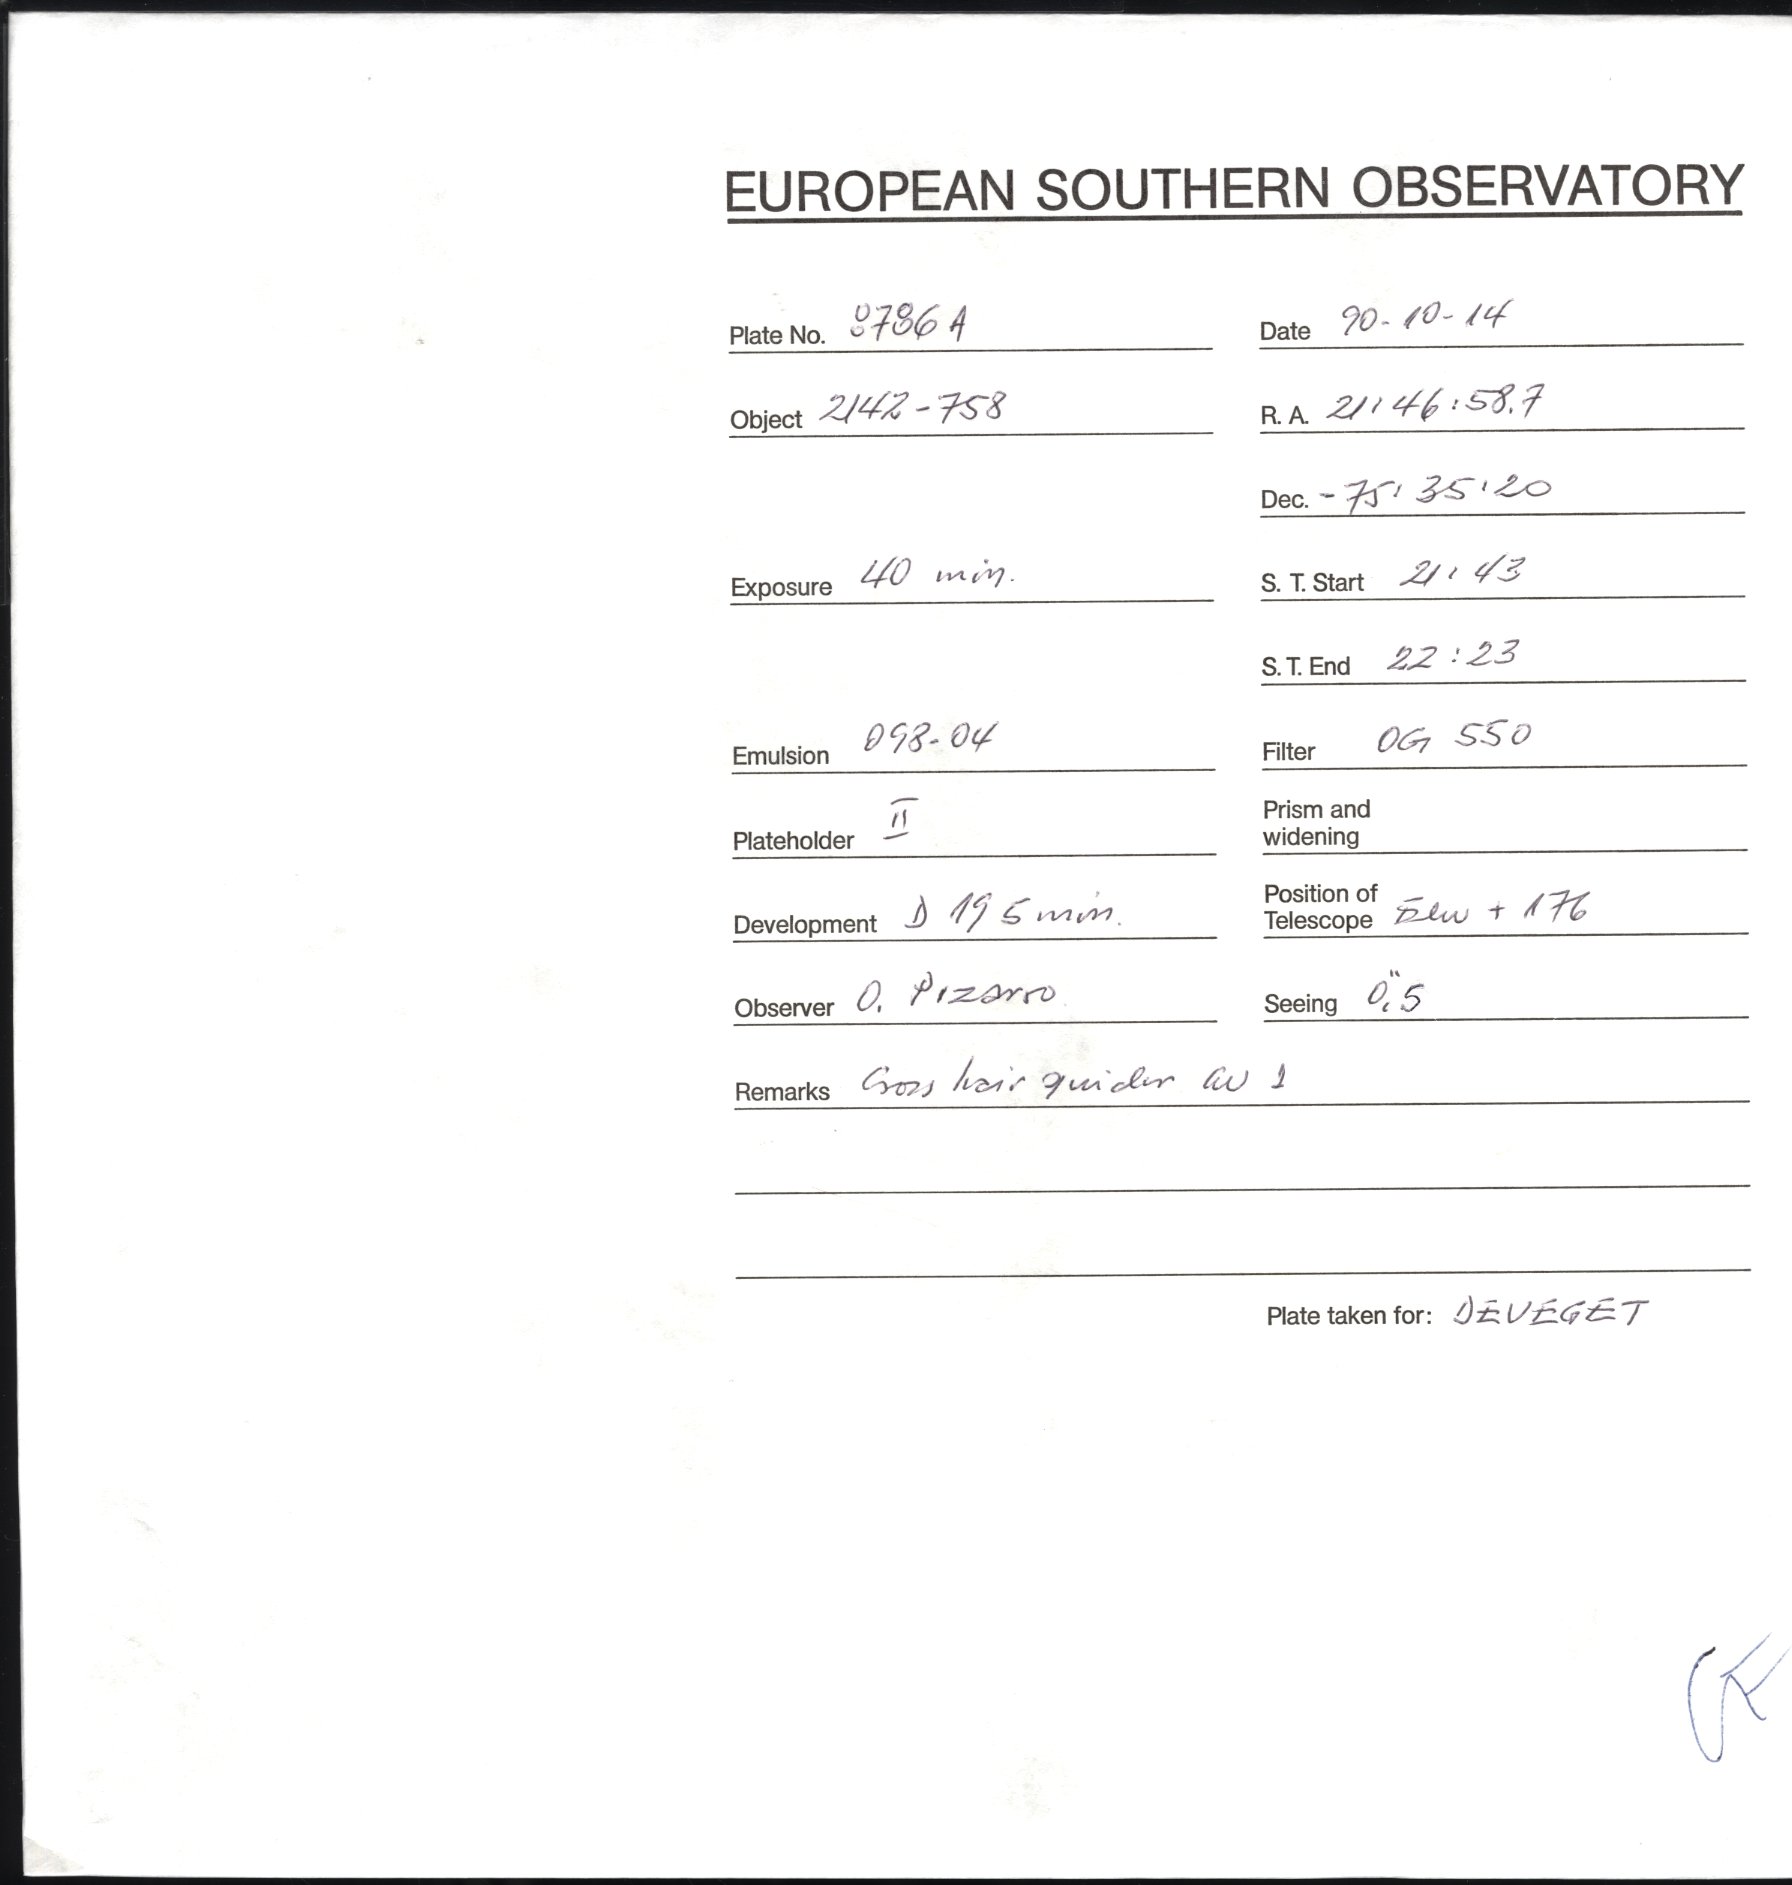 EUROPEAN SOUTHERN OBSERVATORY
Plate No. 8786 A Date 90-10-14
Object 2142-758 R. A. 21:46:58.7
Dec. -75:35:20
Exposure 40 min. S. T. Start 21:43
S. T. End 22:23
Emulsion 098-04 Filter OG 550
Plateholder II Prism and widening
Development D 19 5 min. Position of Telescope + 176
Observer O. Pizarro Seeing 0."5
Remarks Cross hair guider 1
Plate taken for: DEVEGET